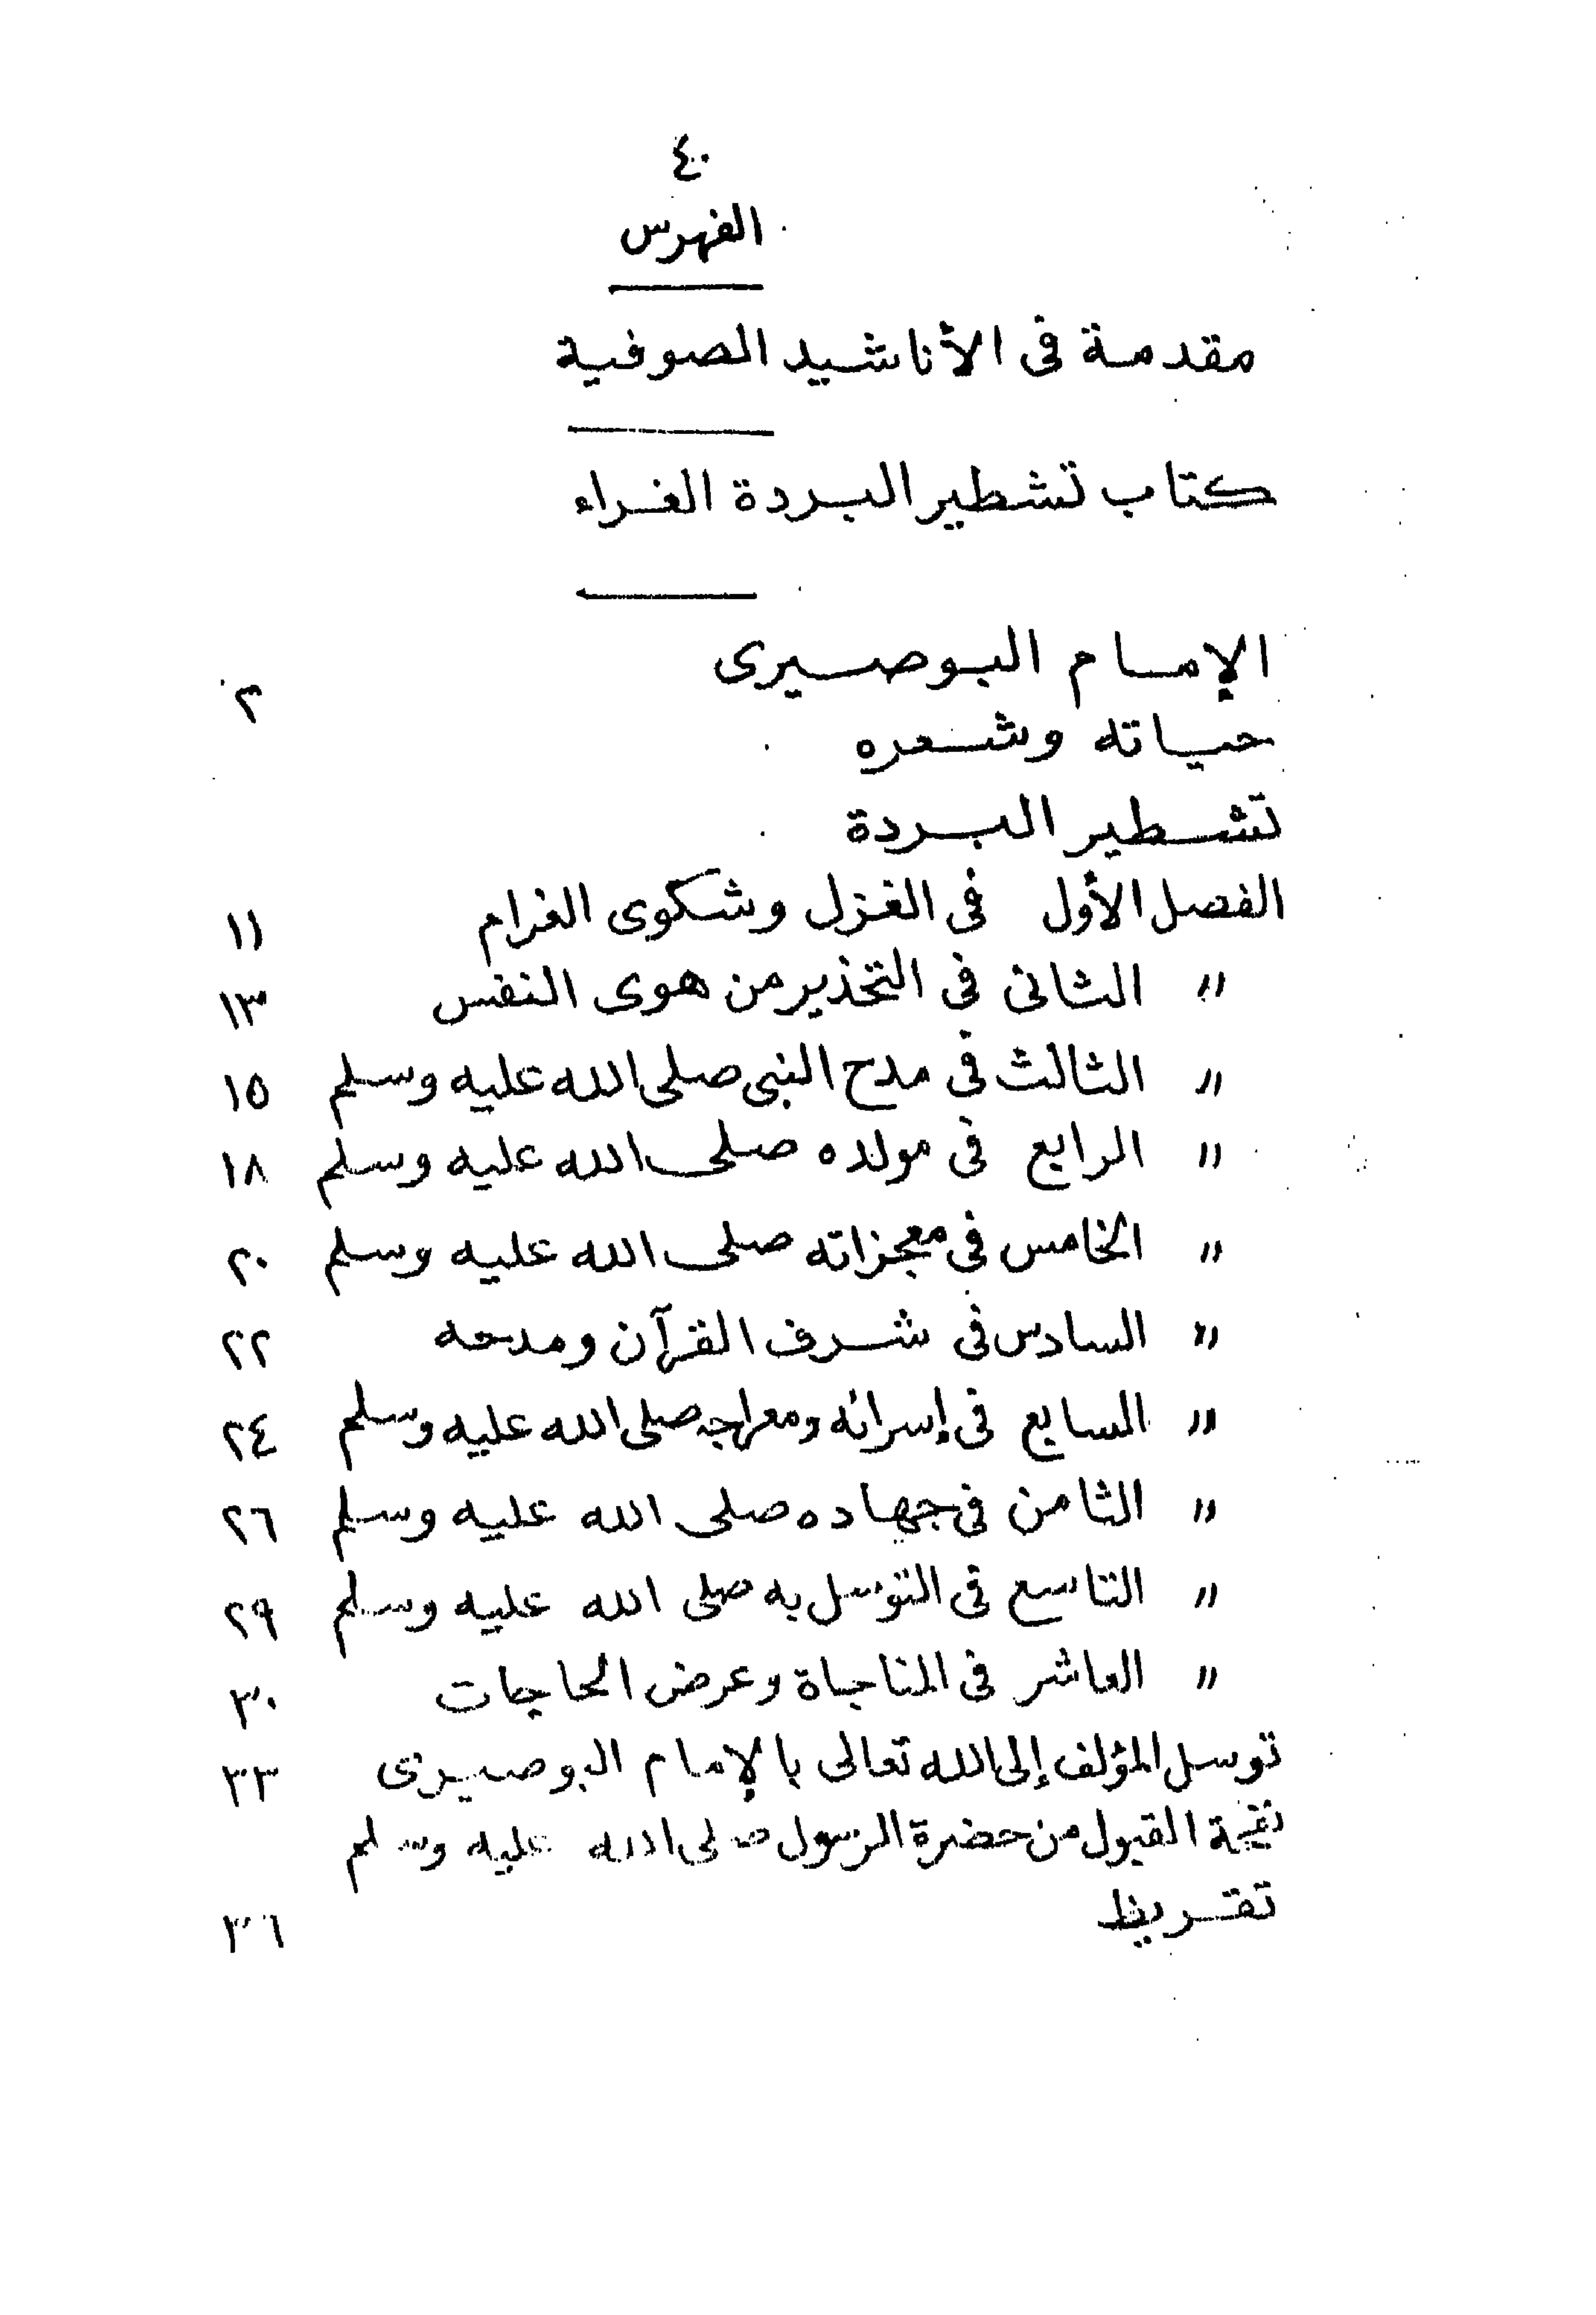 ٤٠
الفهرس
مقدمة فى الأناشيد الصوفية
كتاب تشطير البردة الغراء
الإمام البوصيرى ٢
حياته وشعره
تشطير البردة
الفصل الأول فى الغزل وشكوى الغرام ١١
" الثانى فى التحذير من هوى النفس ١٣
" الثالث فى مدح النبى صلى الله عليه وسلم ١٥
" الرابع فى مولده صلى الله عليه وسلم ١٨
" الخامس فى معجزاته صلى الله عليه وسلم ٢٠
" السادس فى شرف القرآن ومدحه ٢٢
" السابع فى إسرائه ومعراجه صلى الله عليه وسلم ٢٤
" الثامن فى جهاده صلى الله عليه وسلم ٢٦
" التاسع فى التوسل به صلى الله عليه وسلم ٢٩
" العاشر فى المناجاة وعرض الحاجات ٣٠
توسل المؤلف إلى الله تعالى بالإمام البوصيرى ٣٣
نفحة القبول من حضرة الرسول صلى الله عليه وسلم
تقريظ ٣٦